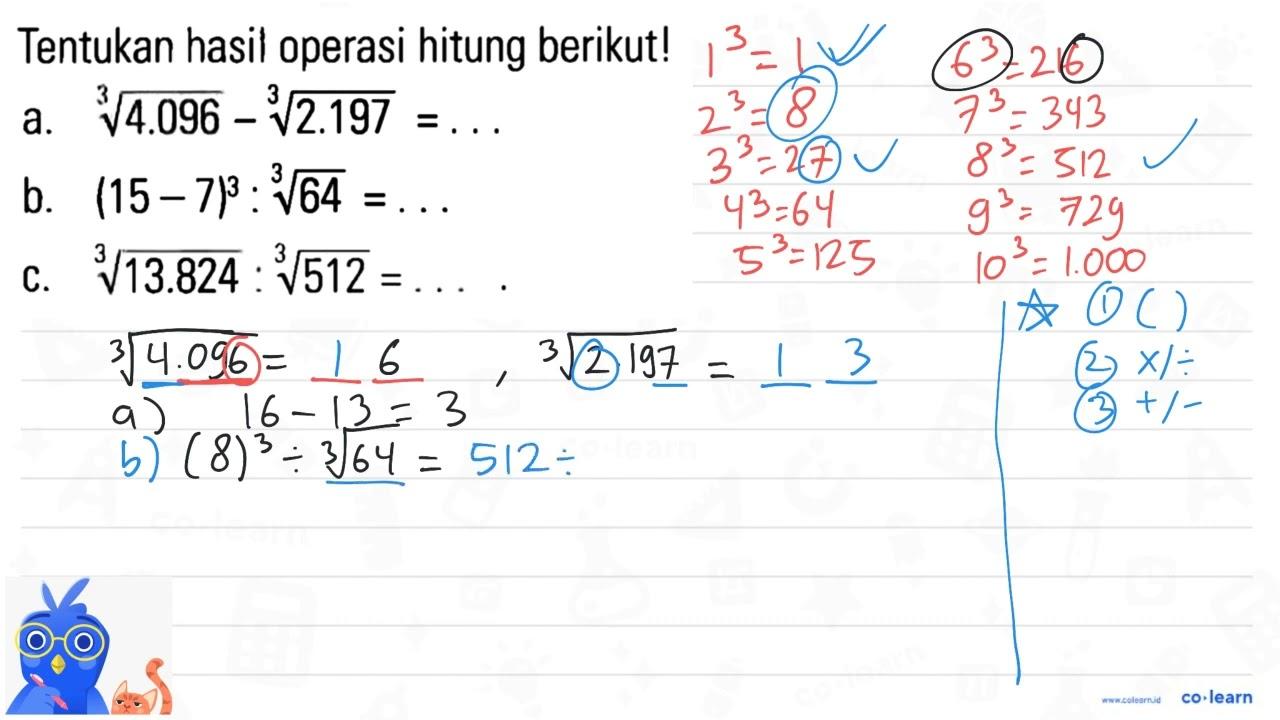 Tentukan hasil operasi hitung berikut!
a. ∛4.096 − ∛2.197 = . . .
b. (15 − 7)³ : ∛64 = . . .
c. ∛13.824 : ∛512 = . . . .
1³ = 1
2³ = 8
3³ = 27
4³ = 64
5³ = 125
6³ = 216
7³ = 343
8³ = 512
9³ = 729
10³ = 1.000
∛4.096 = 1 6 , ∛2.197 = 1 3
a) 16 − 13 = 3
b) (8)³ ÷ ∛64 = 512 ÷
☆ ① ( )
② ×/÷
③ +/−
www.colearn.id co·learn